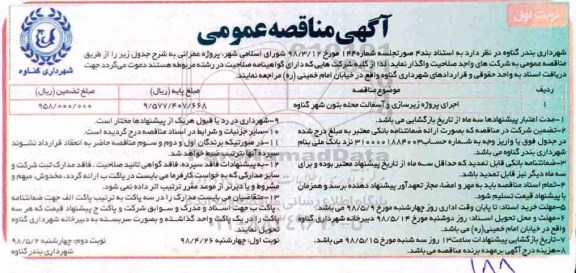 نوبت اول
آگهی مناقصه عمومی
شهرداری گناوه
شهرداری بندر گناوه در نظر دارد به استناد بند۴ صورتجلسه شماره۱۴۴ مورخ ۹۸/۳/۱۲ شورای اسلامی شهر، پروژه عمرانی به شرح جدول زیر را از طریق
مناقصه عمومی به شرکت های واجد صلاحیت واگذار نماید. لذا از کلیه شرکت هایی که دارای گواهینامه صلاحیت در رشته مربوطه هستند دعوت می‌گردد جهت
دریافت اسناد به واحد حقوقی و قراردادهای شهرداری گناوه واقع در خیابان امام خمینی (ره) مراجعه نمایند.
ردیف موضوع مناقصه مبلغ پایه (ریال) مبلغ تضمین (ریال)
۱ اجرای پروژه زیرسازی و آسفالت محله بتون شهر گناوه ۹/۵۷۷/۴۰۷/۶۶۸ ۹۵۸/۰۰۰/۰۰۰
۱-مدت اعتبار پیشنهادها سه ماه از تاریخ بازگشایی می باشد.
۲-تضمین شرکت در مناقصه که بصورت ارائه ضمانتنامه بانکی معتبر به مبلغ درج شده
در جدول فوق یا واریز وجه به شماره حساب نزد بانک ملی بنام
شهرداری بندر گناوه می باشد.
۳-ضمانتنامه بانکی قابل تمدید که حداقل سه ماه از تاریخ پیشنهاد معتبر بوده و برای
سه ماه دیگر نیز قابل تمدید باشد.
۴-تمام اسناد مناقصه باید به مهر و امضاء مجاز تعهدآور پیشنهاد دهنده برسد و همزمان
با پیشنهاد قیمت تسلیم شود.
۵-مهلت خرید اسناد: تا پایان وقت اداری روز چهارشنبه مورخ ۹۸/۵/۹ می باشد.
۶-مهلت و محل تحویل اسناد: روز دوشنبه مورخ ۹۸/۵/۱۴ دبیرخانه شهرداری گناوه
واقع در خیابان امام خمینی(ره) می باشد.
۷-تاریخ بازگشایی پیشنهادات ساعت۱۳ روز سه شنبه مورخ ۹۸/۵/۱۵ می باشد.
۸-هزینه درج آگهی برعهده برنده مناقصه می باشد.
۹-شهرداری در رد یا قبول هریک از پیشنهادها مختار است.
۱۰-سایر جزئیات و شرایط در اسناد مناقصه درج گردیده است.
۱۱-در صورتیکه برندگان اول و دوم و سوم مناقصه حاضر به انعقاد قرارداد نشوند
سپرده آنها بترتیب ضبط خواهد شد.
۱۲-به پیشنهادات فاقد سپرده، فاقد گواهی تائید صلاحیت، فاقد مدارک ثبت شرکت و
سایر مدارکی که به خواست کارفرما می بایست در پاکت ب ارائه گردد، مخدوش، مبهم و
مشروط و یا دیرتر از موعد مقرر ترتیب اثر داده نمی شود.
۱۳-متقاضیان می بایست مدارک را در سه پاکت به ترتیب پاکت الف جهت ضمانتنامه
، پاکت ب جهت اسناد و مدرک و سوابق شرکت و پاکت ج پیشنهاد قیمت که هر سه
پاکت را در یک پاکت واحد گذاشته و بصورت سربسته به دبیرخانه شهرداری گناوه
تحویل نمایند.
نوبت اول: چهارشنبه ۹۸/۴/۲۶ نوبت دوم: چهارشنبه ۹۸/۵/۲
شهرداری بندر گناوه